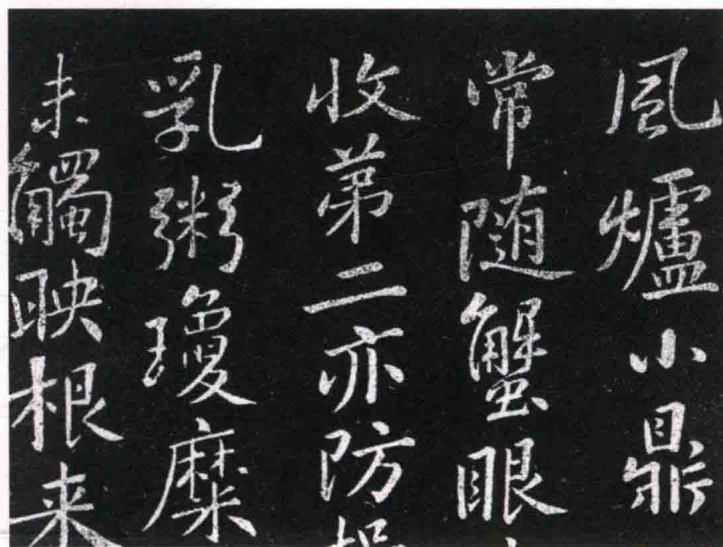 風爐小鼎
常随蟹眼
收苐二亦防
乳粥瓊糜
未觸映根来